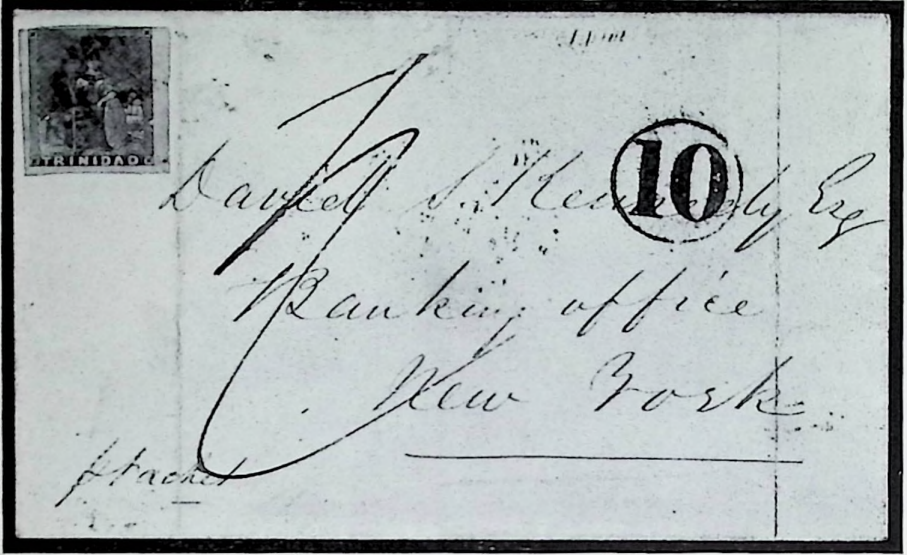 TRINIDAD
10
David S. Kennedy Esq
Banking office
New York